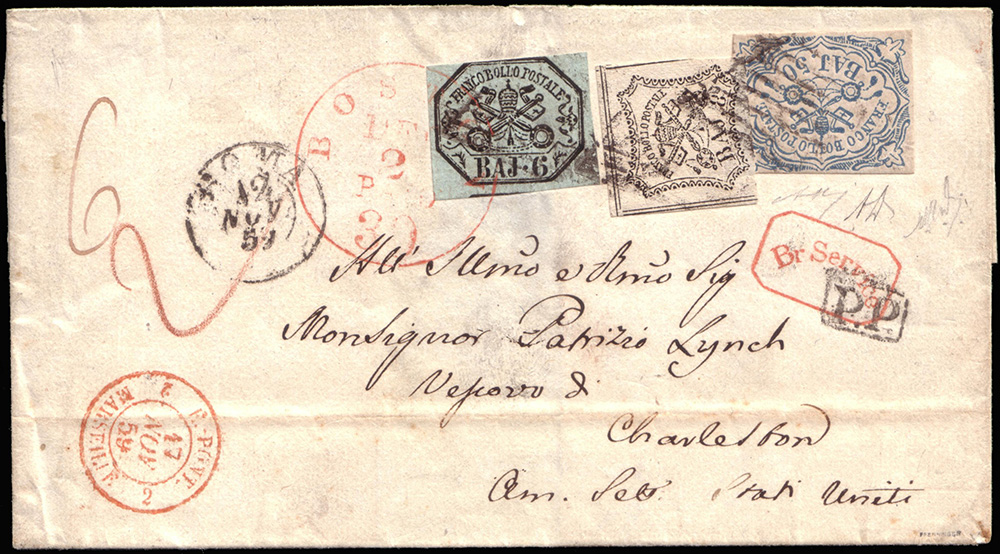 FRANCO BOLLO POSTALE
BAJ·6
BAJ
BAJ 50
FRANCO BOLLO POSTALE
ROMA
12
NOV
59
BOS
PAID
Br Service
P.P.
All' Illmo e Rmo Sig
Monsignor Patrizio Lynch
Vescovo di
Charleston
Am. Sett. Stati Uniti
E. PONT.
17
NOV
59
MARSEILLE
2